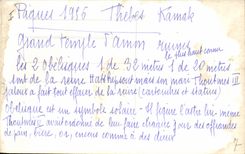 Pâques 1956 Thèbes Karnak
Grand temple d'Amon ruines
le plus haut connu
les 2 obélisques 1 de 30 mètres 1 de 20 mètres
sont de la reine Hatshepsout mais son mari Thoutmès III
jaloux a fait tout effacer de la reine (cartouches et statues)
Obélisque est un symbole solaire - Il figure l'astre lui-même
Thoutmès III avait ordonné de leur faire chaque jour des offrandes
de pain, bière, or, encens comme à des dieux
7